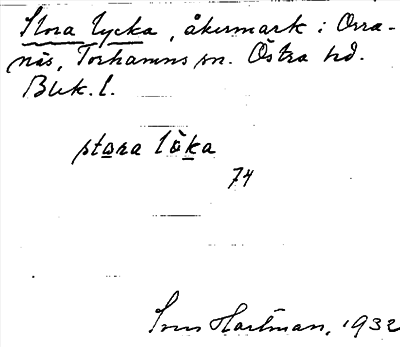 Stora lycka, åkermark i Orra-
näs, Torhamns sn. Östra hd.
Blek. l.
stora löka
74
Sven Hartman, 1932